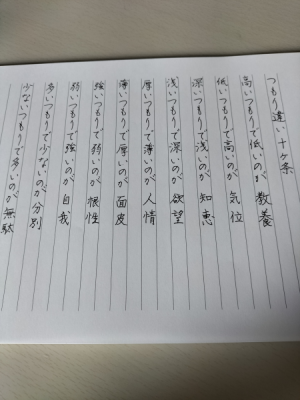 つもり違い十ヶ条
高いつもりで低いのが 教養
低いつもりで高いのが 気位
深いつもりで浅いのが 知恵
浅いつもりで深いのが 欲望
厚いつもりで薄いのが 人情
薄いつもりで厚いのが 面皮
強いつもりで弱いのが 根性
弱いつもりで強いのが 自我
多いつもりで少ないのが 分別
少ないつもりで多いのが 無駄